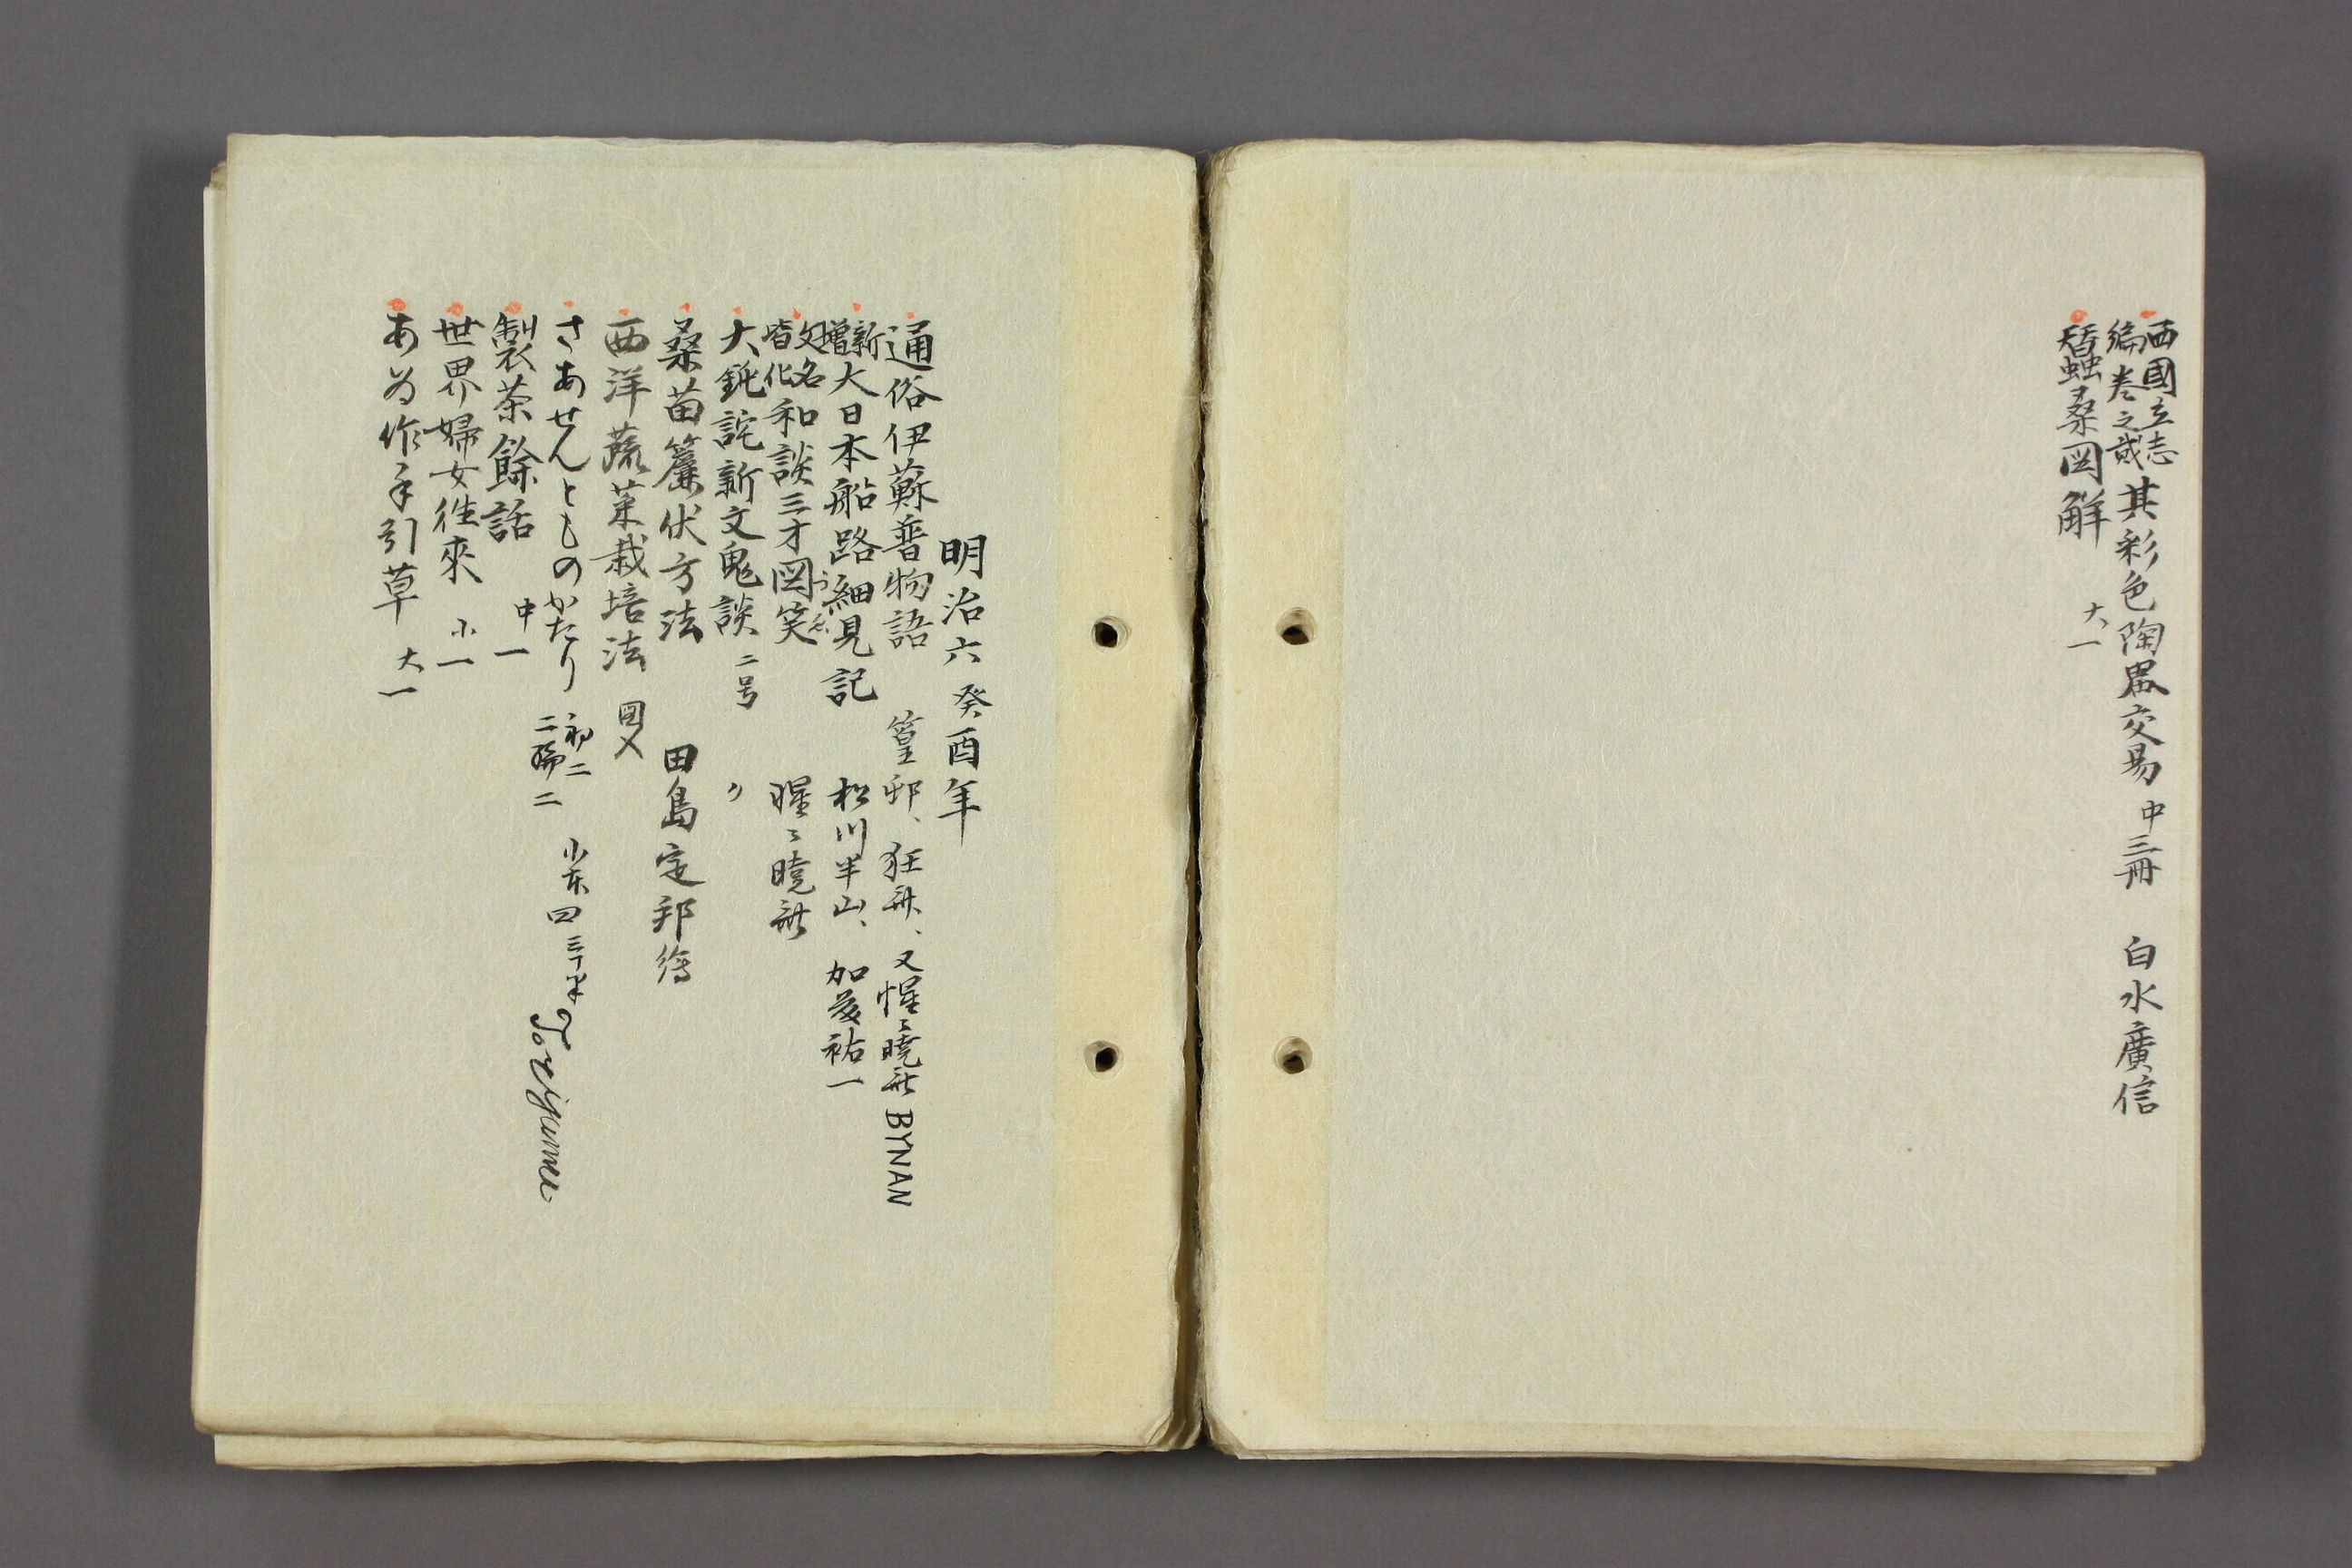 西國立志編巻之貮其彩色陶器交易 中三冊 白水廣信
蠶桑図解 大一
明治六 癸酉年
通俗伊蘇普物語 篁邨、狂斎、又惺〻暁斎 BYNAN
新増大日本船路細見記 松川半山、加藤祐一
文名皆化和談三才図笑 づゑ 猩〻暁斎
大鈍詫新文鬼談 二号 〃
桑苗簾伏方法 田島定邦
西洋蔬菜栽培法 図入
さあせんとものかたり 初二 二編二 小本四 Toriyama
製茶餘話 中一
世界婦女徃來 小一
あゐ作手引草 大一